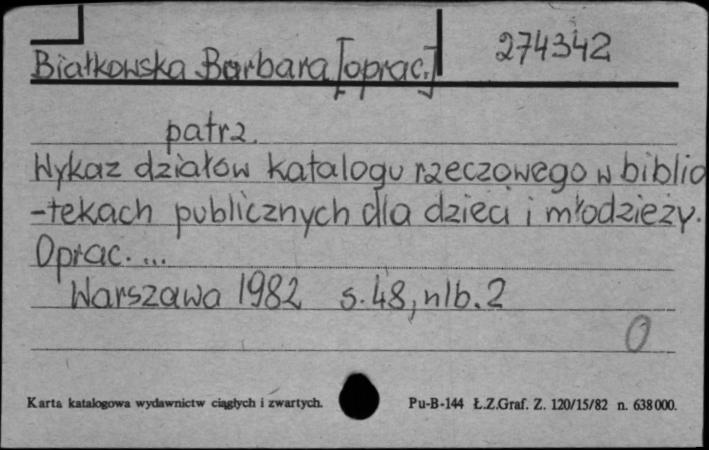 Białkowska Barbara [oprac.] 274342
patrz.
Wykaz działów katalogu rzeczowego w biblio
-tekach publicznych dla dzieci i młodzieży.
Oprac. ...
Warszawa 1982 s. 48, nlb. 2
0
Karta katalogowa wydawnictw ciągłych i zwartych. Pu-B-144 Ł.Z.Graf. Z. 120/15/82 n. 638000.